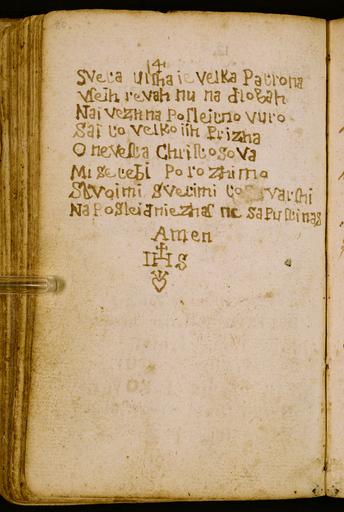 14
Sveta Ursha ie velka Patrona
vseih revah inu na dlogah
Nai vezhna Posleidno vuro
Sai to velko iih Prizha
O nevesta Christosova
Mi se tebi Porozhimo
Stvoimi svetimi tovarshi
Na Posleidnie zhas ne sapusti nas
Amen
IHS